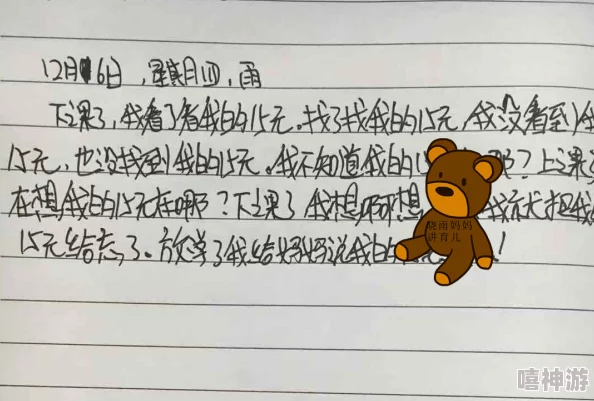 12月16日，星期四，雨
下课了，我看了看我的15元。找了找我的15元，我没看到我
15元，也没找到我的15元。我不知道我的1 哪？上课
在想我的15元在哪？下课了我想啊想 我就把我
15元给忘了。放学了我给妈妈说我的 ！
晓雨妈妈
讲育儿
嘻神游